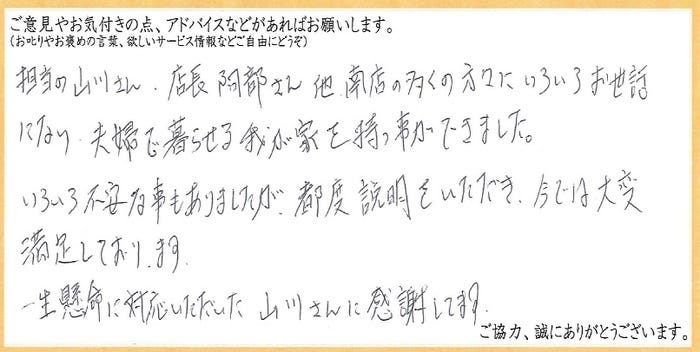 ご意見やお気付きの点、アドバイスなどがあればお願いします。
(お叱りやお褒めの言葉、欲しいサービス情報などご自由にどうぞ)
担当の山川さん、店長 阿部さん 他、南店の多くの方々にいろいろお世話
になり、夫婦で暮らせる我が家を持つ事ができました。
いろいろ不安な事もありましたが、都度説明をいただき、今では大変
満足しております。
一生懸命に対応いただいた 山川さんに感謝してます。
ご協力、誠にありがとうございます。